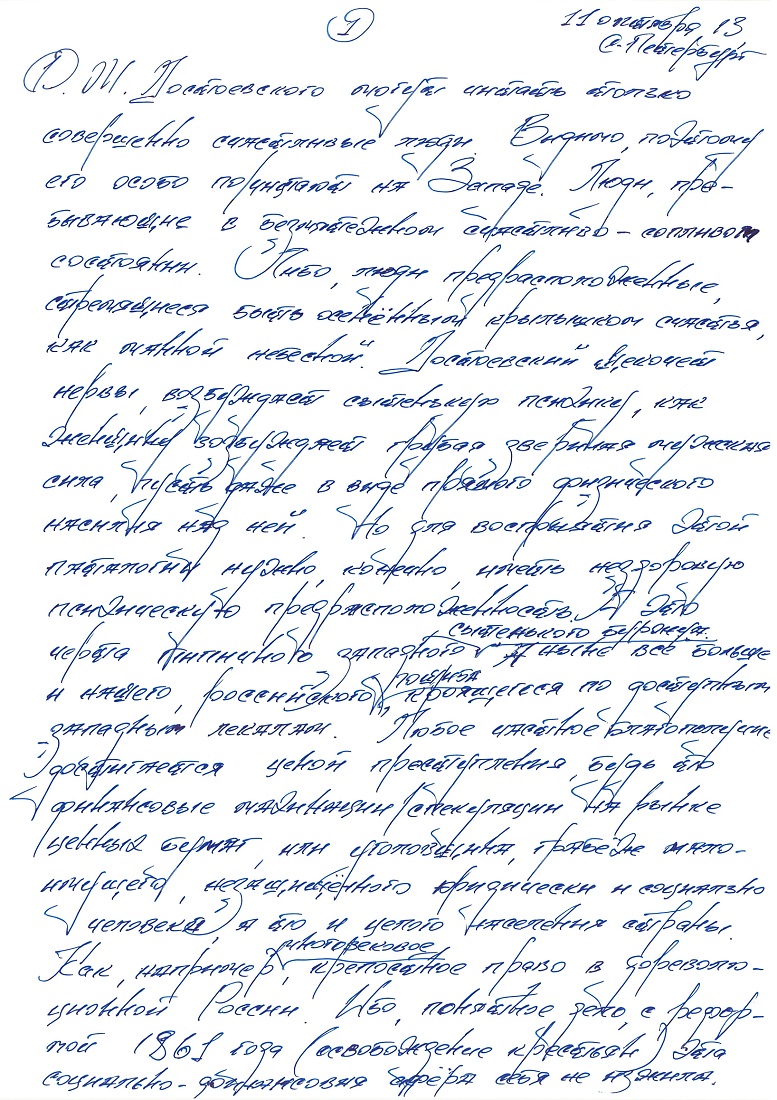 1
11 октября 13
С.-Петербург
Ф. М. Достоевского могут читать только
совершенно счастливые люди. Видимо, поэтому
его особо почитают на Западе. Люди, пре-
бывающие в безмятежном счастливо-сопливом
состоянии. Либо, люди предрасположенные,
стремящиеся быть осенённым крылышком счастья,
как манной небесной. Достоевский щекочет
нервы, возбуждает сытенькую психику, как
женщину возбуждает грубая звериная мужская
сила, пусть даже в виде прямого физического
насилия над ней. Но для восприятия этой
паталогии нужно, конечно, иметь нездоровую
психическую предрасположенность. А это
сытенького буржуа.
черта типичного западного А ныне всё больше
пошиба
и нашего, российского, кроящегося по доступным
западным лекалам. Любое частное благополучие
достигается ценой преступления, будь то
финансовые махинации (спекуляции на рынке
ценных бумаг, или уголовщина, грабёж мало-
имущего, незащищённого юридически и социально
человека), а то и целого населения страны.
многовековое
Как, например, крепостное право в дореволю-
ционной России. Ибо, понятное дело, с рефор-
мой 1861 года (освобождение крестьян) эта
социально-финансовая афера себя не изжила.